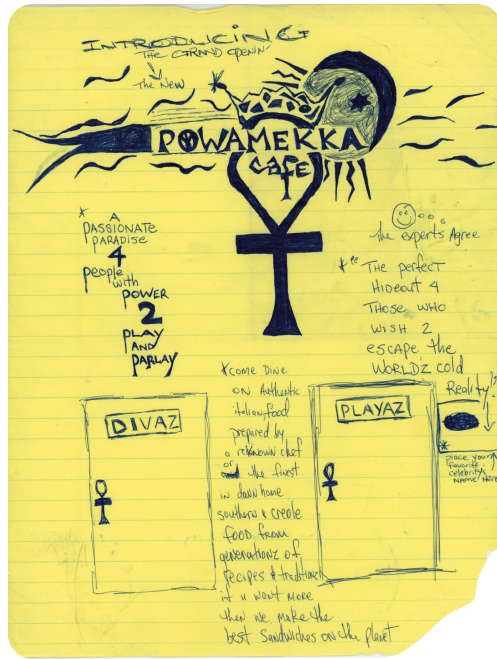 INTRODUCING
THE GRAND OPENIN'
The New
POWAMEKKA
cafe
* A
PASSIONATE
PARADISE
4
people
with
POWER
2
PLAY
AND
PARLAY
The experts Agree
*"The perfect
HIDEOUT 4
THOSE WHO
WISH 2
escape the
WORLD'Z cold
Reality!"
DIVAZ
*COME DINE
ON Authentic
italian food
prepared by
a reknown chef
or the finest
in down home
southern & creole
FOOD FROM
generationz of
recipes & traditionz
if u want more
then we make the
best sandwiches on the planet
PLAYAZ
*
place your
favorite
celebrity
NAME Here